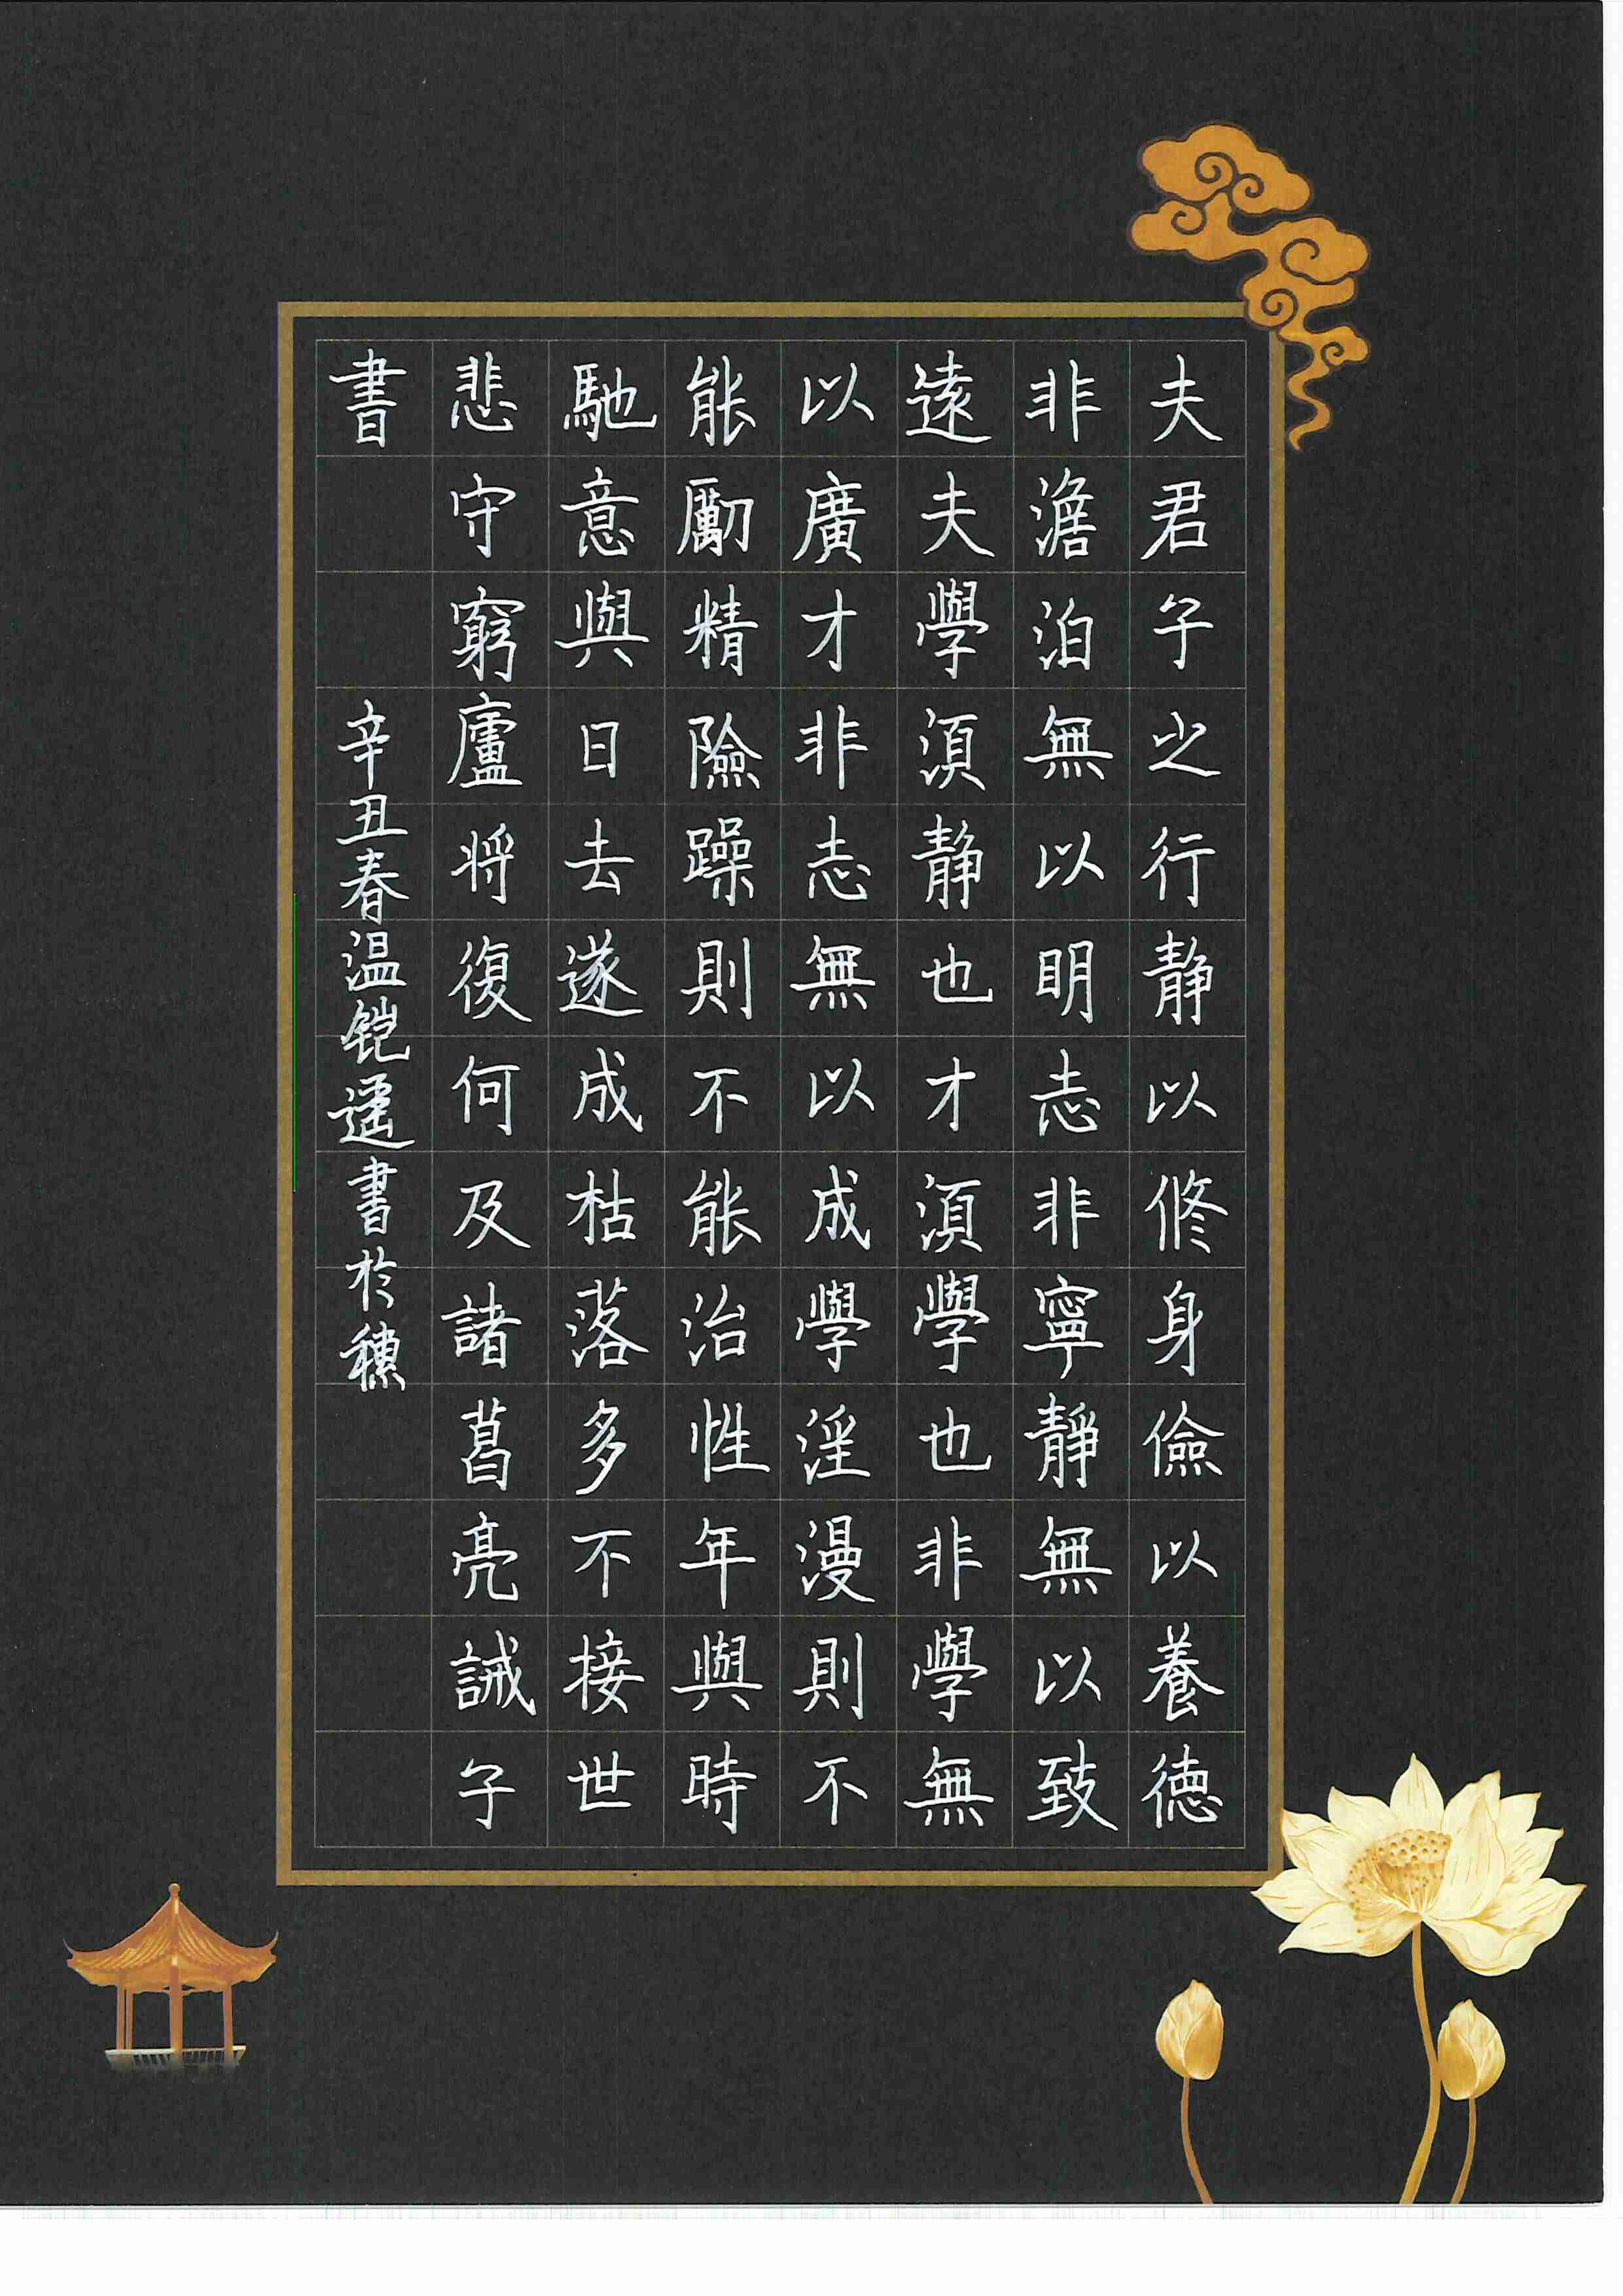 夫君子之行静以修身儉以養德
非澹泊無以明志非寧靜無以致
遠夫學須静也才須學也非學無
以廣才非志無以成學淫漫則不
能勵精險躁則不能治性年與時
馳意與日去遂成枯落多不接世
悲守窮廬将復何及諸葛亮誡子
書
辛丑春温铠遥書於穗